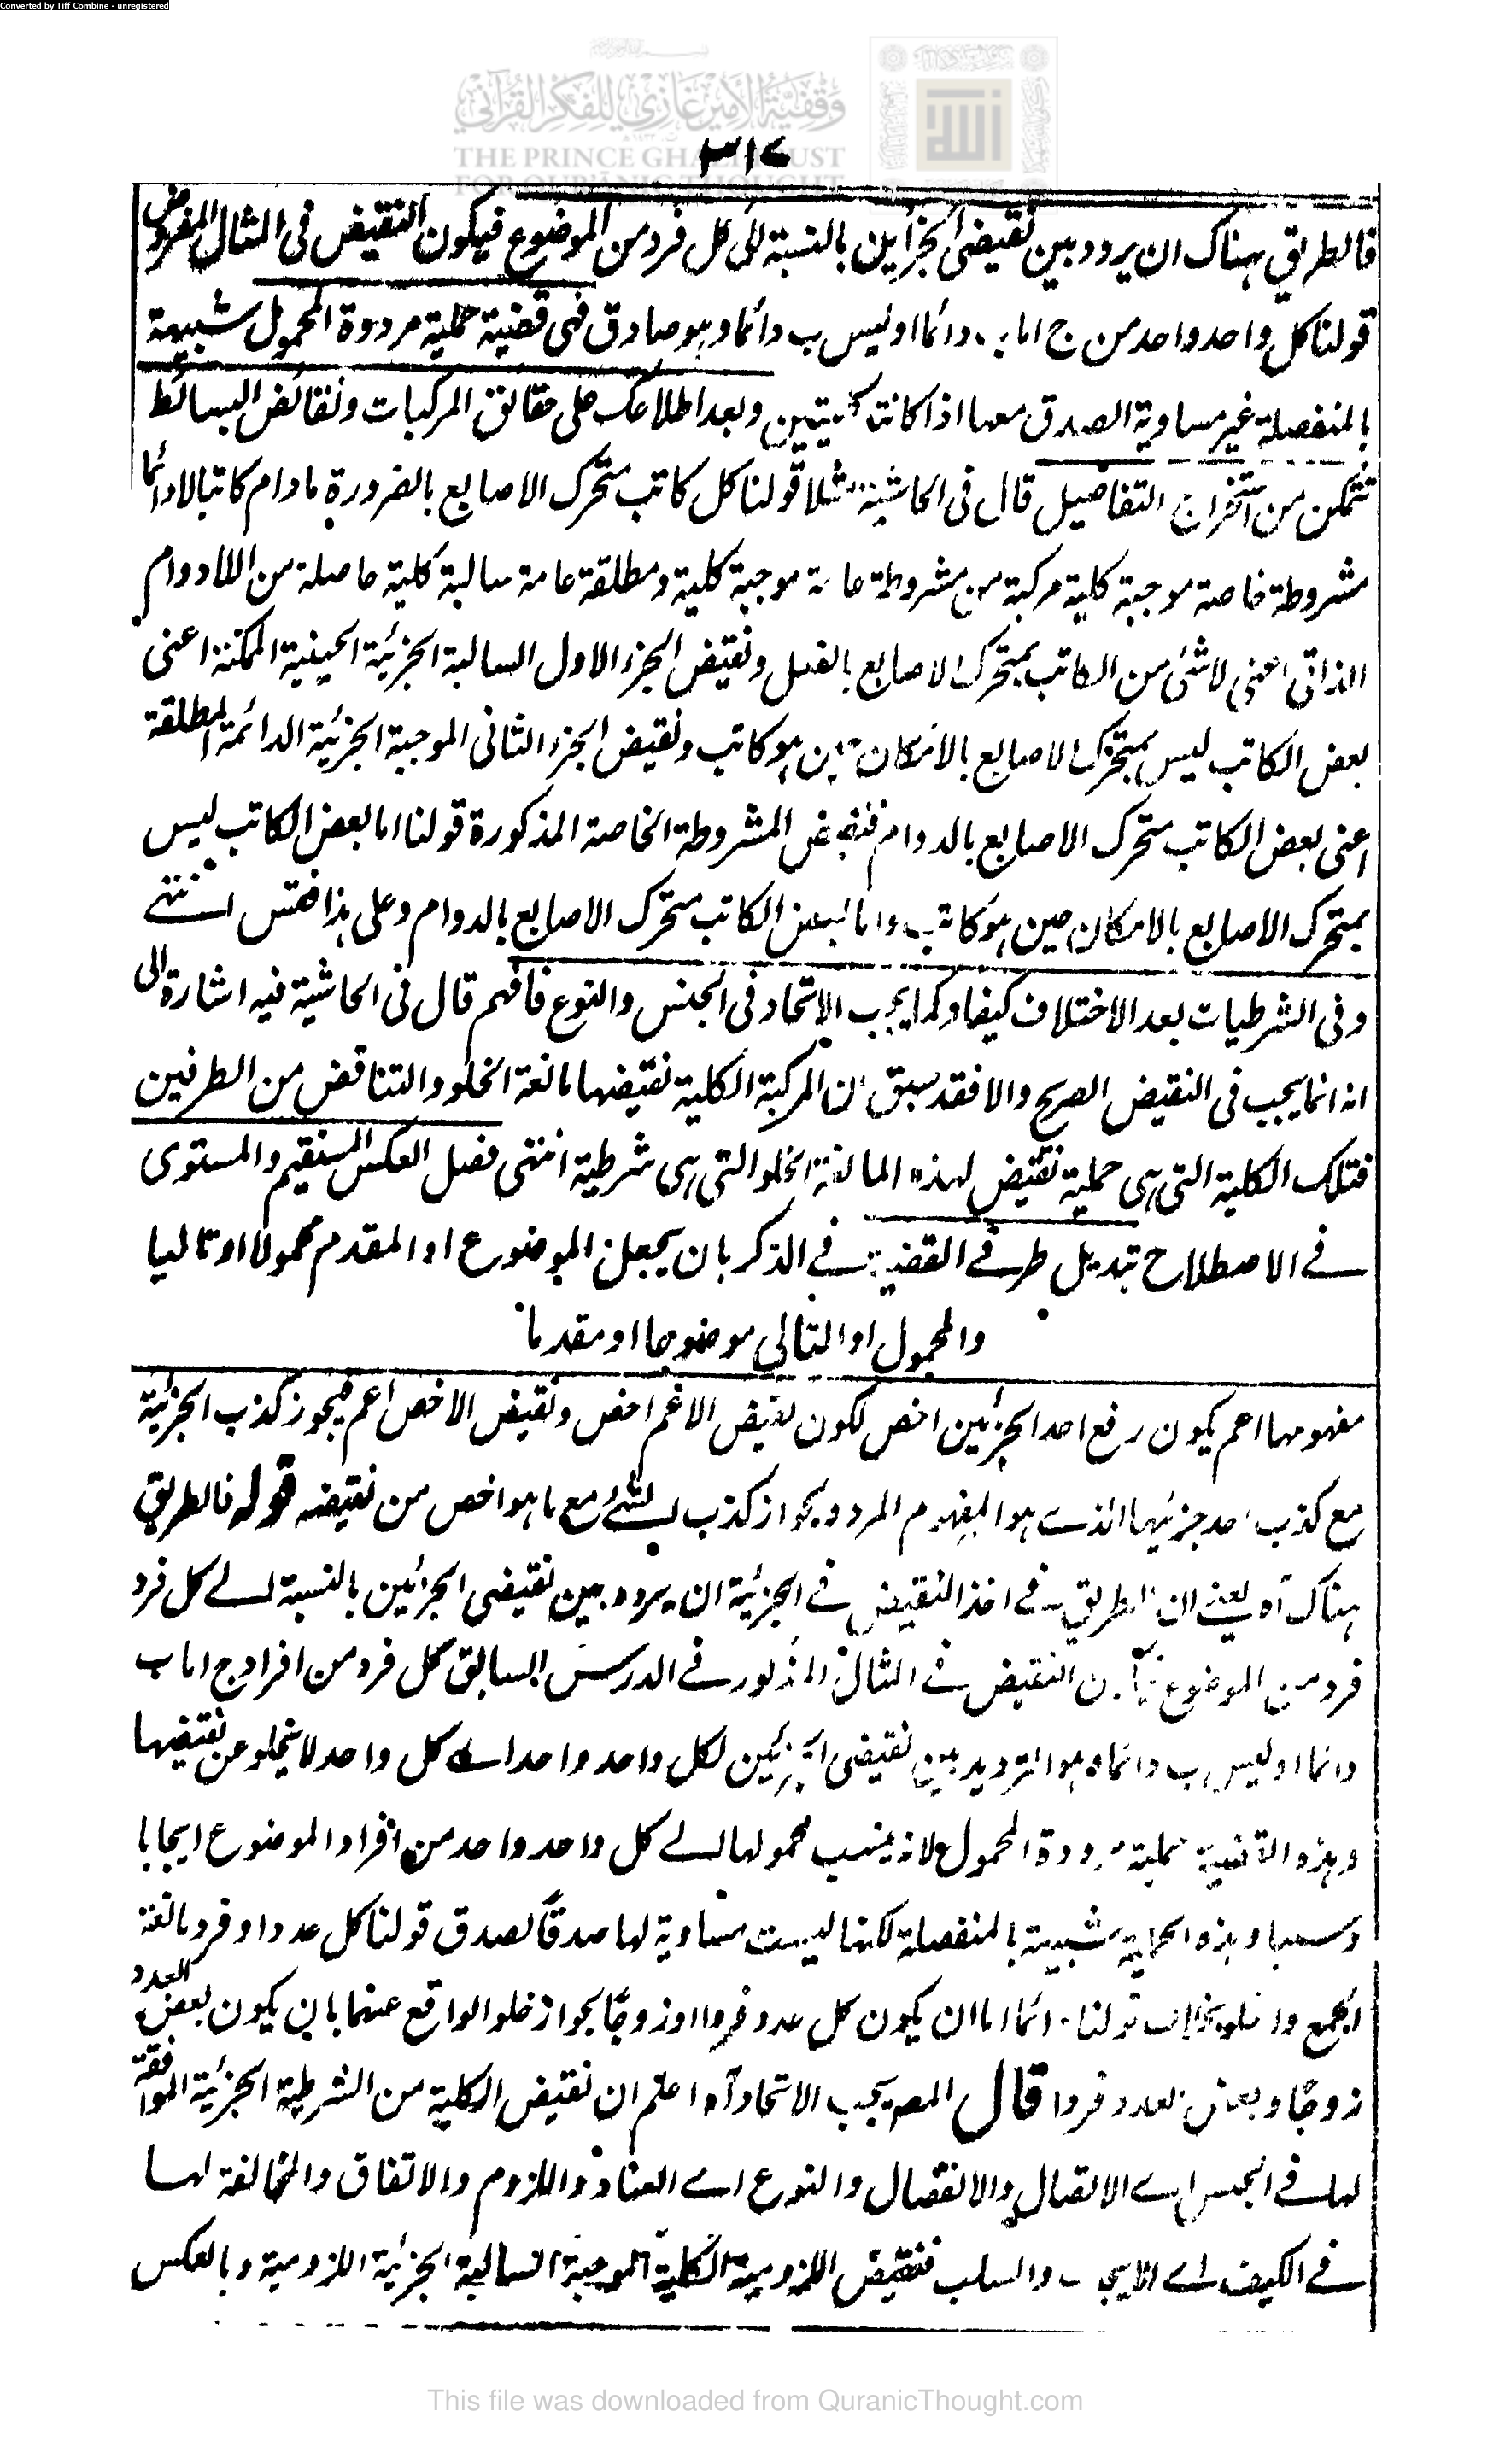 Converted by Tiff Combine - unregistered
وقفية الأمير غازي للفكر القرآني
THE PRINCE GHAZI TRUST
FOR QUR'ĀNIC THOUGHT
٣١٧
فالطريق هناك ان يردد بين نقيضى الجزأين بالنسبة الى كل فرد من الموضوع فيكون النقيض فى المثال المفروض
قولنا كل واحد واحد من ج اما ب دائما او ليس ب دائما وهو صادق فهى قضية حملية مرددة المحمول شبيهة
بالمنفصلة غير مساوية الصدق معها اذا كانتا كليتين وبعد اطلاعك على حقائق المركبات ونقائض البسائط
تتمكن من استخراج التفاصيل قال فى الحاشية مثلا قولنا كل كاتب متحرك الاصابع بالضرورة مادام كاتبا لا دائما
مشروطة خاصة موجبة كلية مركبة من مشروطة عامة موجبة كلية ومطلقة عامة سالبة كلية حاصلة من اللادوام
الذاتى اعنى لا شئ من الكاتب بمتحرك الاصابع بالفعل ونقيض الجزء الاول السالبة الجزئية الحينية الممكنة اعنى
بعض الكاتب ليس بمتحرك الاصابع بالامكان حين هو كاتب ونقيض الجزء الثانى الموجبة الجزئية الدائمة المطلقة
اعنى بعض الكاتب متحرك الاصابع بالدوام فنقيض المشروطة الخاصة المذكورة قولنا اما بعض الكاتب ليس
بمتحرك الاصابع بالامكان حين هو كاتب واما بعض الكاتب متحرك الاصابع بالدوام وعلى هذا فقس انتهى
وفى الشرطيات بعد الاختلاف كيفا وكما يجب الاتحاد فى الجنس والنوع فافهم قال فى الحاشية فيه اشارة الى
انه انما يجب فى النقيض الصريح والا فقد سبق ان المركبة الكلية نقيضها مانعة الخلو والتناقض من الطرفين
فتلك الكلية التى هى حملية نقيض لهذه المانعة الخلو التى هى شرطية انتهى فصل العكس المستقيم والمستوى
فى الاصطلاح تبديل طرفى القضية فى الذكر بان يجعل الموضوع او المقدم محمولا او تاليا
والمحمول او التالى موضوعا او مقدما
مفهومها اعم يكون رفع احد الجزئين اخص لكون نقيض الاعم اخص ونقيض الاخص اعم فيجوز كذب الجزئية
مع كذب احد جزئيها الذى هو المفهوم المردد بجواز كذب الشئ مع ما هو اخص من نقيضه قوله فالطريق
هناك آه يعنى ان الطريق فى اخذ النقيض فى الجزئية ان يردد بين نقيضى الجزئين بالنسبة الى كل فرد
فرد من الموضوع فيكون النقيض فى المثال المذكور فى الدرس السابق كل فرد من افراد ج اما ب
دائما او ليس ب دائما وهو الترديد بين نقيضى الجزئين لكل واحد واحد اى كل واحد لا يخلو عن نقيضها
وهذه القضية حملية مرددة المحمول لانه ينسب محمولها الى كل واحد واحد من افراد الموضوع ايجابا
وسلبا وهذه الحملية شبيهة بالمنفصلة لكنها ليست مساوية لها صدقًا لصدق قولنا كل عدد او فرد مانعة
الجمع والخلو بخلاف قولنا دائما اما ان يكون كل عدد فردا او زوجًا لجواز خلو الواقع عنهما بان يكون بعض العدد
زوجًا وبعض العدد فردا قال المصـ يجب الاتحاد آه اعلم ان نقيض الكلية من الشرطية الجزئية الموافقة
لها فى الجنس اى الاتصال والانفصال والنوع اى العناد واللزوم والاتفاق والمخالفة لها
فى الكيف اى الايجاب والسلب فنقيض اللزومية الكلية الموجبة السالبة الجزئية اللزومية وبالعكس
This file was downloaded from QuranicThought.com